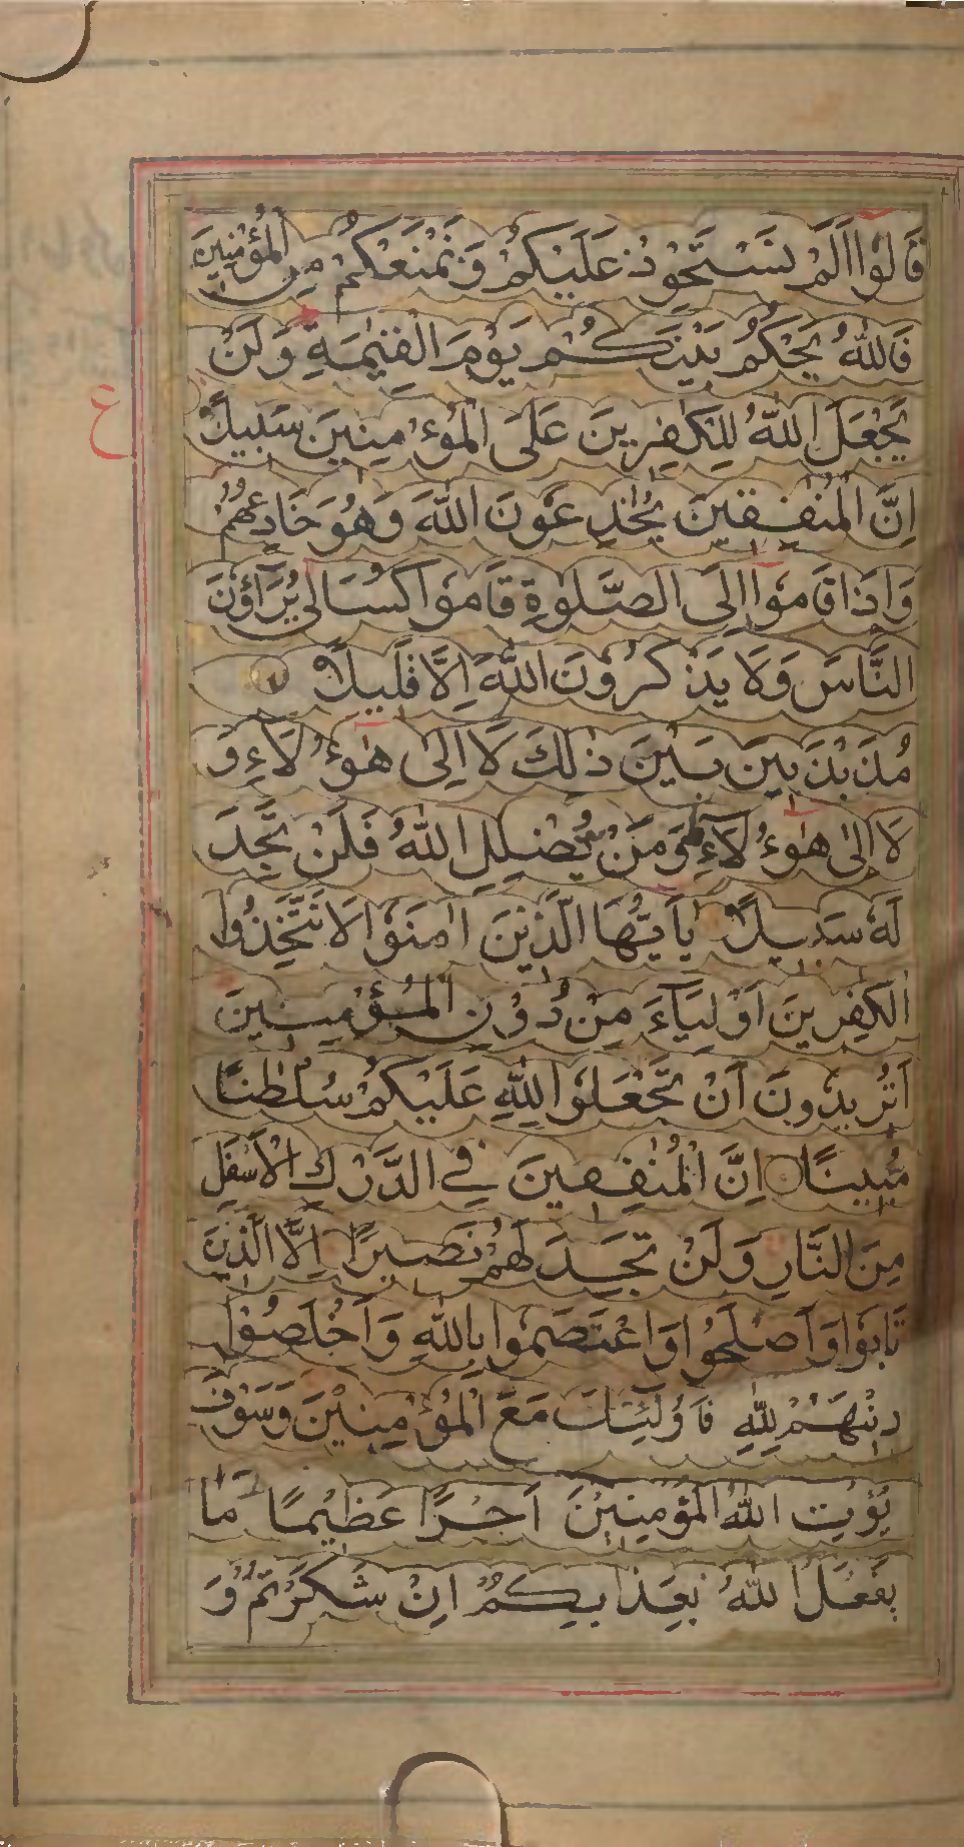 قَالُوا اَلَمْ نَسْتَحْوِذْ عَلَيْكُمْ وَنَمْنَعْكُمْ مِنَ الْمُؤْمِنِينَ
فَاللّٰهُ يَحْكُمُ بَيْنَكُمْ يَوْمَ الْقِيٰمَةِ وَلَنْ
ع
يَجْعَلَ اللّٰهُ لِلْكٰفِرِينَ عَلَى الْمُؤْمِنِينَ سَبِيلًا
اِنَّ الْمُنٰفِقِينَ يُخٰدِعُونَ اللّٰهَ وَهُوَ خَادِعُهُمْ
وَاِذَا قَامُوْا اِلَى الصَّلٰوةِ قَامُوْا كُسَالٰى يُرَاؤُنَ
النَّاسَ وَلَا يَذْكُرُوْنَ اللّٰهَ اِلَّا قَلِيلًا
مُذَبْذَبِينَ بَيْنَ ذٰلِكَ لَا اِلٰى هٰؤُلَاءِ وَ
لَا اِلٰى هٰؤُلَاءِ وَمَنْ يُضْلِلِ اللّٰهُ فَلَنْ تَجِدَ
لَهٗ سَبِيلًا يٰاَيُّهَا الَّذِيْنَ اٰمَنُوْا لَا تَتَّخِذُوا
الْكٰفِرِينَ اَوْلِيَآءَ مِنْ دُوْنِ الْمُؤْمِنِينَ
اَتُرِيدُونَ اَنْ تَجْعَلُوْا لِلّٰهِ عَلَيْكُمْ سُلْطٰنًا
مُبِينًا اِنَّ الْمُنٰفِقِينَ فِي الدَّرْكِ الْاَسْفَلِ
مِنَ النَّارِ وَلَنْ تَجِدَ لَهُمْ نَصِيرًا اِلَّا الَّذِيْنَ
تَابُوْا وَاَصْلَحُوْا وَاعْتَصَمُوْا بِاللّٰهِ وَاَخْلَصُوْا
دِيْنَهُمْ لِلّٰهِ فَاُولٰئِكَ مَعَ الْمُؤْمِنِيْنَ وَسَوْفَ
يُؤْتِ اللّٰهُ الْمُؤْمِنِيْنَ اَجْرًا عَظِيْمًا مَا
يَفْعَلُ اللّٰهُ بِعَذَابِكُمْ اِنْ شَكَرْتُمْ وَ